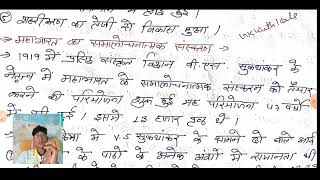 ⑥ शहरीकरण का तेजी से विकास हुआ।
→ महाभारत का समालोचनात्मक संस्करण →
→ 1919 में प्रसिद्ध संस्कृत विद्वान वी. एस. सुकथांकर के
नेतृत्व में महाभारत के समालोचनात्मक संस्करण को तैयार
करने की परियोजना शुरू हुई यह परियोजना 47 वर्षों
इसमें 13 हजार पृष्ठ थे।
में V.S सुकथांकर के सामने दो बातें आई
के पाठों के अनेक अंशों में समानता थी
inkwithlale